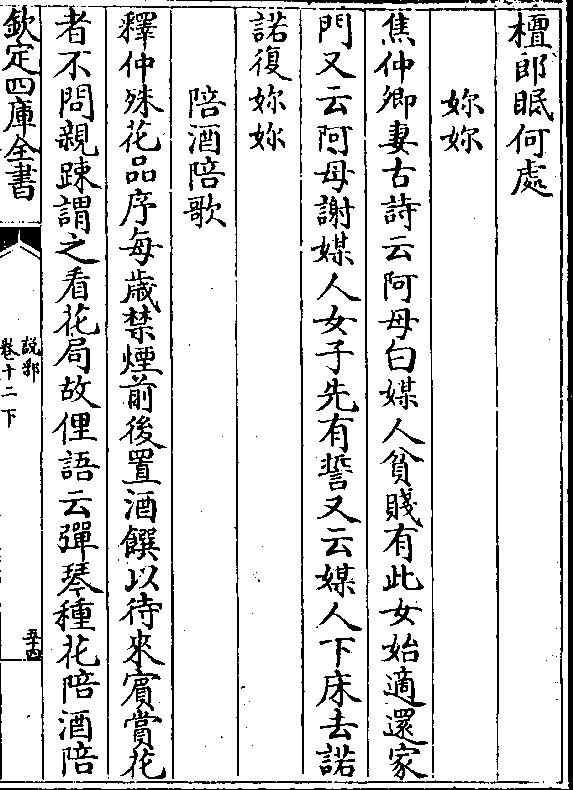 檀郎眠何處
妳妳
焦仲卿妻古詩云阿母白媒人貧賤有此女始適還家
門又云阿母謝媒人女子先有誓又云媒人下床去諾
諾復妳妳
陪酒陪歌
釋仲殊花品序每歳禁煙前後置酒饌以待來賓賞花
者不問親踈謂之看花局故俚語云彈琴種花陪酒陪
欽定四庫全書
說郛
卷十二下
五十四